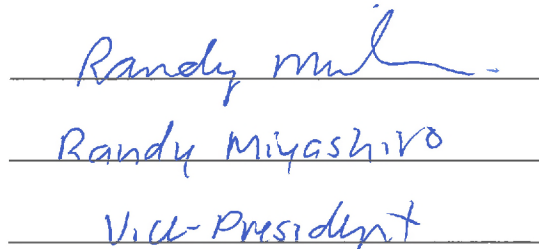 Randy
Randy Miyashiro
Vice-President